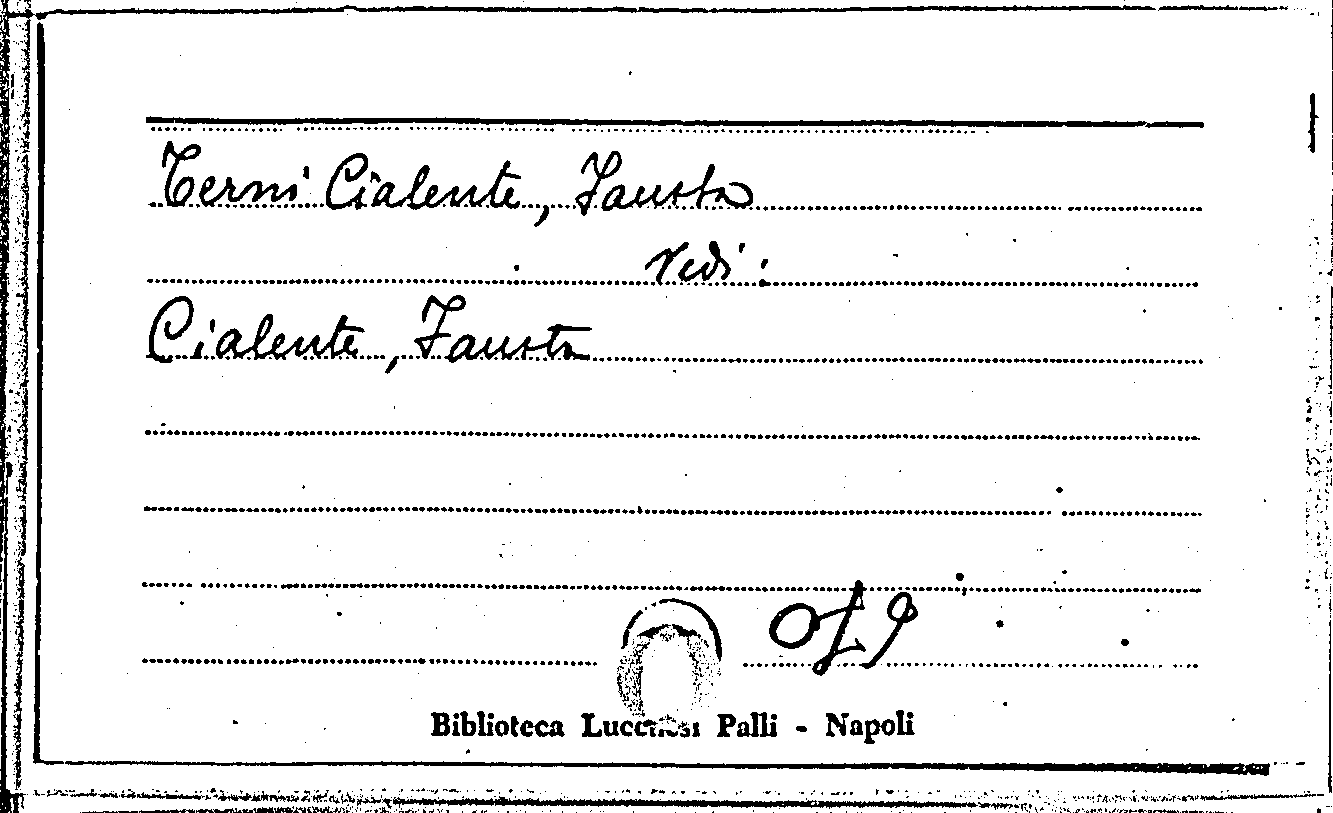 Terni Cialente, Fausta
Vedi:
Cialente, Fausta
Biblioteca Lucchesi Palli - Napoli